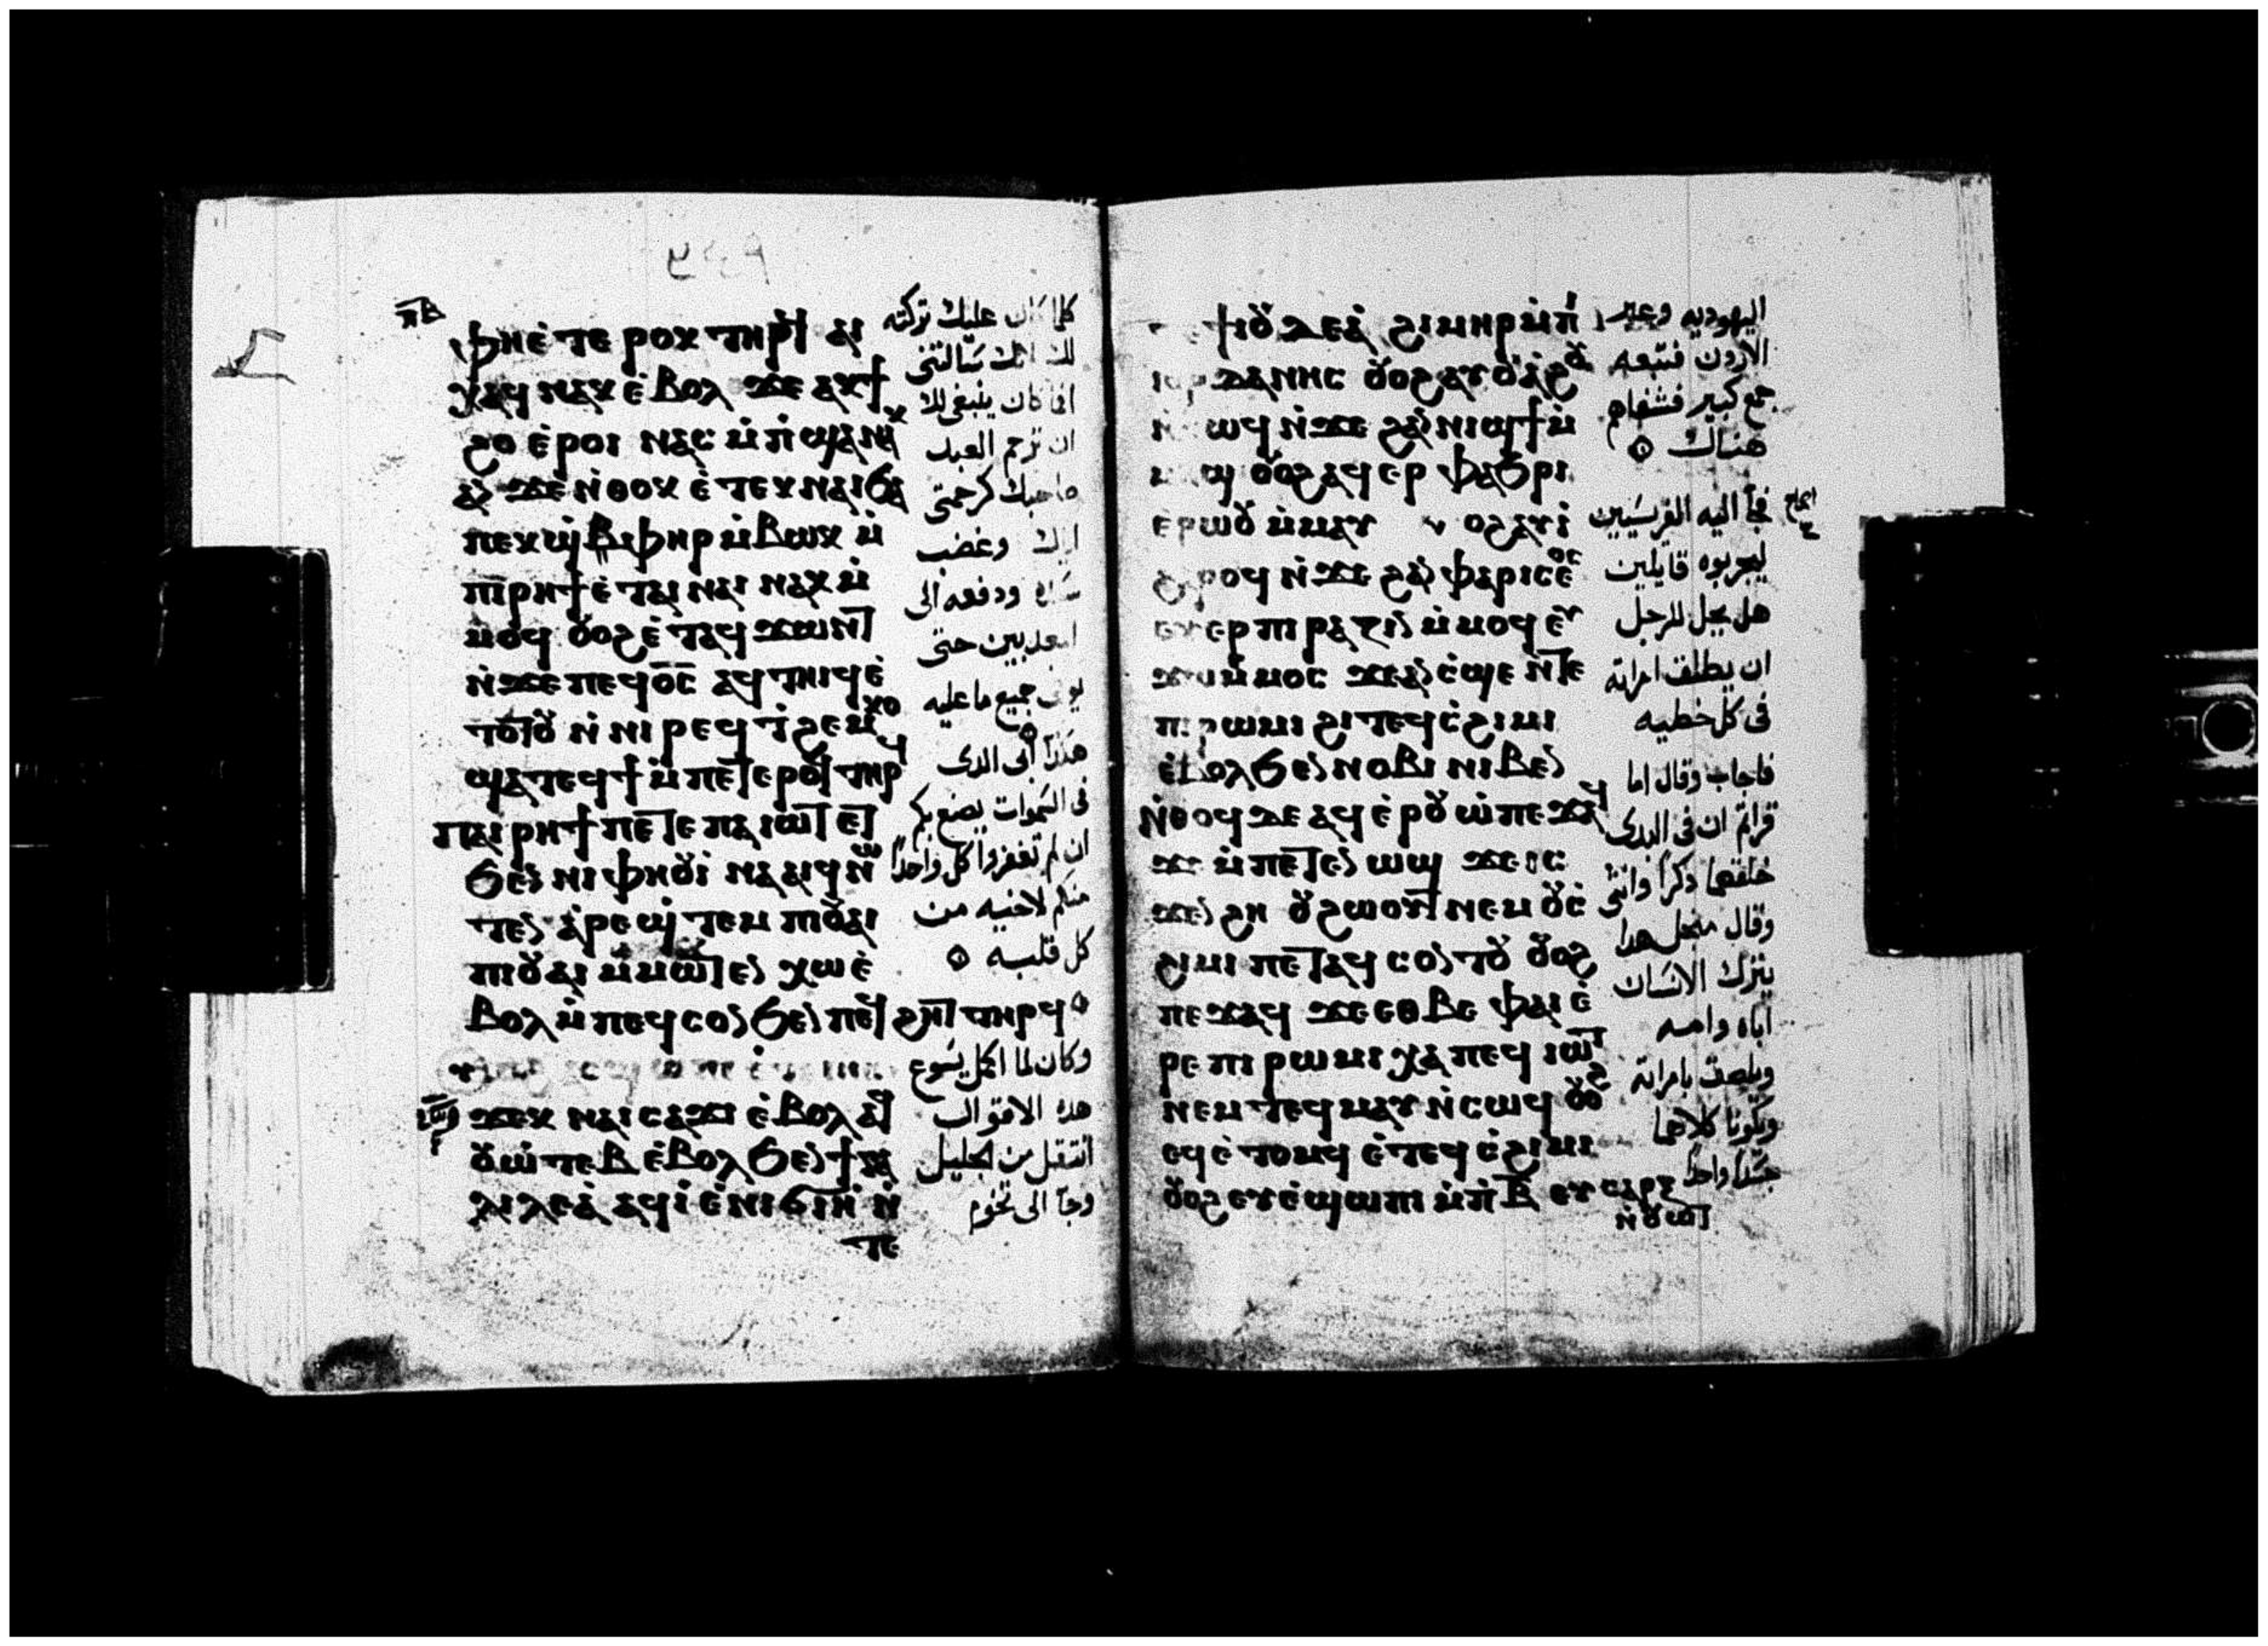 ⲡⲃ
ⲫⲏⲉ̇ ⲧⲉ ⲣⲟⲕ ⲧⲏⲣϥ ⲁⲓ
ⲭⲁϥ ⲛⲁⲕ ⲉ̇ⲃⲟⲗ ϫⲉ ⲁⲕϯ
ϩⲟ ⲉ̇ⲣⲟⲓ ⲛⲁⲥ ⲙ̇ⲡ̇ϣⲁ ⲛⲁⲕ
ⲁⲛ ϫⲉ ⲛ̇ⲑⲟⲕ ⲉ̇ⲧⲉⲕⲛⲁⲓ ϧⲁ
ⲡⲉⲕϣ̇ⲃⲓⲫⲏⲣ ⲙ̇ⲃⲱⲕ ⲙ̇
ⲡⲓⲣⲏϯ ⲉ̇ⲧⲁⲓ ⲛⲁⲓ ⲛⲁⲕ ⲙ̇
ⲙⲟϥ ⲟⲩⲟϩ ⲉ̇ⲧⲁϥ ϫⲱⲛⲧ
ⲛ̇ϫⲉ ⲡⲉϥⲟ̅ⲥ̅ ⲁϥⲧⲏⲓϥ ⲉ̇
ⲧⲟⲧⲟⲩ ⲛ̇ⲛⲓ ⲣⲉϥ ⲧ̇ϩⲉⲙⲕⲟ
ϣⲁⲧⲉϥϯ ⲙ̇ⲡⲉⲧⲉⲣⲟϥ ⲧⲏⲣϥ
ⲡⲁⲓ ⲣⲏϯ ⲡⲉⲧⲉ ⲡⲁⲓⲱⲧ ⲉⲧ
ϧⲉⲛ ⲛⲓⲫⲏⲟⲩⲓ̇ ⲛⲁⲁⲓϥ ⲛⲱ
ⲧⲉⲛ ⲁ̇ⲣⲉϣ̇ⲧⲉⲙ ⲡⲓⲟⲩⲁⲓ
ⲡⲓⲟⲩⲁⲓ ⲙ̇ⲙⲱⲧⲉⲛ ⲭⲱ ⲉ̇
ⲃⲟⲗ ⲙ̇ⲡⲉϥⲥⲟⲛ ϧⲉⲛ ⲡⲉϥ ϩⲏⲧ ⲧⲏⲣϥ
ϫⲉⲕ ⲛⲁⲓ ⲥⲁϫⲓ ⲉ̇ⲃⲟⲗ ⲁϥ
ⲟⲩⲱ̇ⲧⲉⲃ ⲉ̇ⲃⲟⲗ ϧⲉⲛ ϯⲅⲁ
ⲗⲓⲗⲉⲁ̇ ⲁϥⲓ̇ ⲉ̇ⲛⲓϭⲓⲏ̇ ⲛ̇
ⲧⲉ
كلما كان عليك تركته
لك انك سَالتنى
افما كان ينبغى لك
ان ترحم العبد
صاحبك كرحمتى
اياك وغضب
سَيده ودفعه الى
المعدبين حتى
يوفى جميع ما عليه
هكذا ابى الدى
فى السَموات يصنع بكم
ان لم تغفروا كل واحداً
منكم لاخيه من
كل قلبه
وكان لما اكمل يَسُوع
هذه الاقوال
انتقل من الجليل
وجآ الى تخوم
ϯⲟⲩⲇⲉⲁ̇ ϩⲓⲙⲏⲣ ⲙ̇ⲡⲓ
ⲓⲟⲣⲇⲁⲛⲏⲥ ⲟⲩⲟϩ ⲁⲩⲟⲩⲁ̇ϩⲟⲩ
ⲛ̇ⲥⲱϥ ⲛ̇ϫⲉ ϩⲁⲛⲛⲓϣϯ ⲙ̇
ⲙⲏϣ ⲟⲩⲟϩ ⲁϥ ⲉⲣ ⲫⲁϧⲣⲓ
ⲉⲣⲱⲟⲩ ⲙ̇ⲙⲁⲩ ⲟϩ ⲁⲩⲓ̇
ϩⲁⲣⲟϥ ⲛ̇ϫⲉ ϩⲁⲛⲫⲁⲣⲓⲥⲉⲟⲥ
ⲉⲩⲉⲣ ⲡⲓⲣⲁⲍⲓⲛ ⲙ̇ⲙⲟϥ ⲉⲩ
ϫⲱ ⲙ̇ⲙⲟⲥ ϫⲉ ⲁⲛ ⲥ̇ϣⲉ ⲛ̇ⲧⲉ
ⲡⲓⲣⲱⲙⲓ ϩⲓ ⲧⲉϥⲥ̇ϩⲓⲙⲓ
ⲉ̇ⲃⲟⲗ ϧⲉⲛ ⲛⲟⲃⲓ ⲛⲓⲃⲉⲛ
ⲛ̇ⲑⲟϥ ⲇⲉ ⲁϥⲉ̇ⲣⲟⲩⲱ̇ ⲡⲉϫⲁϥ
ϫⲉ ⲙ̇ⲡⲉⲧⲉⲛ ⲱϣ ϫⲉ ⲓⲥ
ϫⲉⲛ ϩⲏ ⲟⲩϩⲱⲟⲩⲧ ⲛⲉⲙ ⲟⲩⲥ̇
ϩⲓⲙⲓ ⲡⲉⲧⲁϥ ⲥⲟⲛⲧⲟⲩ ⲟⲩⲟϩ
ⲡⲉϫⲁϥ ϫⲉ ⲉⲑⲃⲉ ⲫⲁⲓ ⲉ̇
ⲣⲉ ⲡⲓⲣⲱⲙⲓ ⲭⲁ ⲡⲉϥ ⲓⲱⲧ
ⲛⲉⲙ ⲧⲉϥⲙⲁⲩ ⲛ̇ⲥⲱϥ ⲟⲩⲟϩ
ⲉϥⲉ̇ⲧⲟⲙϥ ⲉ̇ⲧⲉϥⲥ̇ϩⲓⲙⲓ
ⲟⲩⲟϩ ⲉⲩⲉ̇ϣⲱⲡⲓ ⲙ̇ⲡ̇ⲃ̅ ⲉⲩ ⲥⲁⲣⲝ
ⲛ̇ⲟⲩⲱⲧ
اليهوديه وعبر
الاردن فتبعه
جمع كبير فشفاهم
هناك
فجآ اليه الفريسَيين
ليجربوه قايلين
هل يحل للرجل
ان يطلق امراته
فى كل خطيه
فاجاب وقال اما
قراتم ان فى البدى
خلقهما ذكراً وانثى
وقال من اجل هدا
يترك الانسَان
اباه وامه
ويلصق بامراته
ويكونا كلاهما
جسَداً واحداً